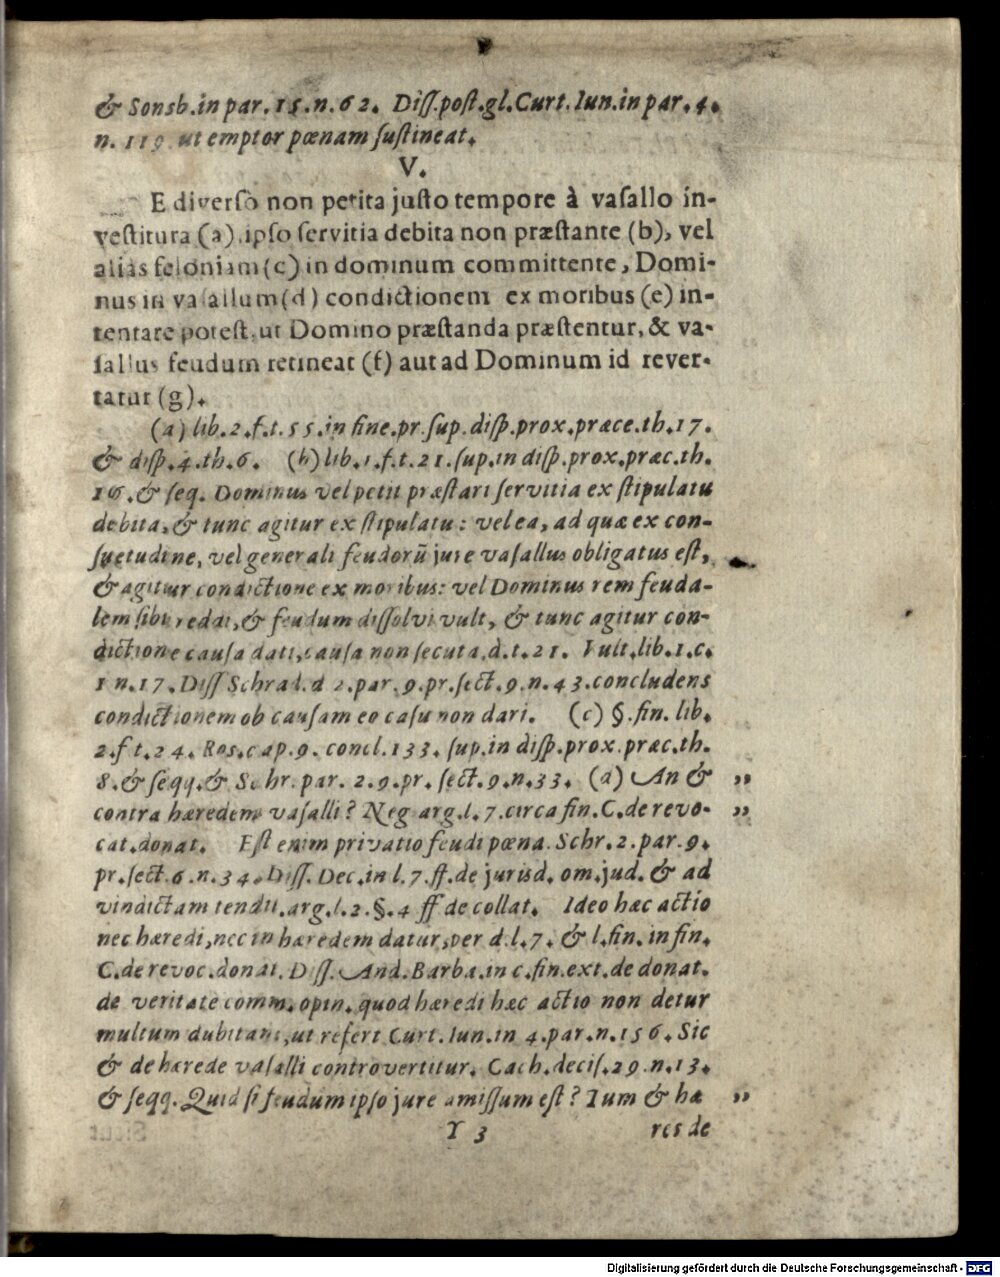 & Sonsb.in par.15.n.62. Diſſ.poſt.gl.Curt.Iun.in par.4.
n. 119 ut emptor pœnam ſuſtineat.
V.
E diverſò non petita juſto tempore à vaſallo in-
veſtitura (a) ipſo ſervitia debita non præſtante (b), vel
alias feloniam (c) in dominum committente, Domi-
nus in vaſallum (d) condictionem ex moribus (e) in-
tentare poteſt, ut Domino præſtanda præſtentur, & va-
ſallus feudum retineat (f) aut ad Dominum id rever-
tatur (g).
(a) lib.2.f.t.55.in fine.pr.ſup.diſp.prox.præce.th.17.
& diſp.4.th.6. (b) lib.1.f.t.21.ſup.in diſp.prox.præc.th.
16.& ſeq. Dominus vel petit præſtari ſervitia ex ſtipulatu
debita, & tunc agitur ex ſtipulatu: vel ea, ad quæ ex con-
ſuetudine, vel generali feudorũ jure vaſallus obligatus eſt,
& agitur condictione ex moribus: vel Dominus rem feuda-
lem ſibi reddi, & feudum diſſolvi vult, & tunc agitur con-
dictione cauſa dati, cauſa non ſecuta.d.t.21. Vult.lib.1.c.
1 n.17. Diſſ Schrad.d 2.par.9.pr.ſect.9.n.43.concludens
condictionem ob cauſam eo caſu non dari. (c) §.fin. lib.
2.f t.24. Ros.cap.9. concl.133. ſup.in diſp.prox.præc.th.
8.& ſeqq.& Schr. par. 2.9.pr. ſect.9.n.33. (d) An & „
contra hæredem vaſalli? Neg arg.l.7.circa fin.C.de revo- „
cat.donat. Eſt enim privatio feudi pœna. Schr.2.par.9.
pr.ſect.6.n.34. Diſſ. Dec.in l.7.ff.de jurisd. om.jud. & ad
vindictam tendit.arg.l.2.§.4 ff de collat. Ideo hæc actio
nec hæredi, nec in hæredem datur, per d.l.7. & l.fin. in fin.
C.de revoc.donat. Diſſ. And. Barba.in c.fin.ext.de donat.
de veritate comm.opin. quod hæredi hæc actio non detur
multum dubitant, ut refert Curt.Iun.in 4.par.n.156. Sic
& de hærede vaſalli controvertitur. Cach.deciſ.29.n.13.
& ſeqq. Quid ſi feudum ipſo jure amiſſum eſt? Tum & hæ „
Y 3 res de
Digitalisierung gefördert durch die Deutsche Forschungsgemeinschaft - DFG